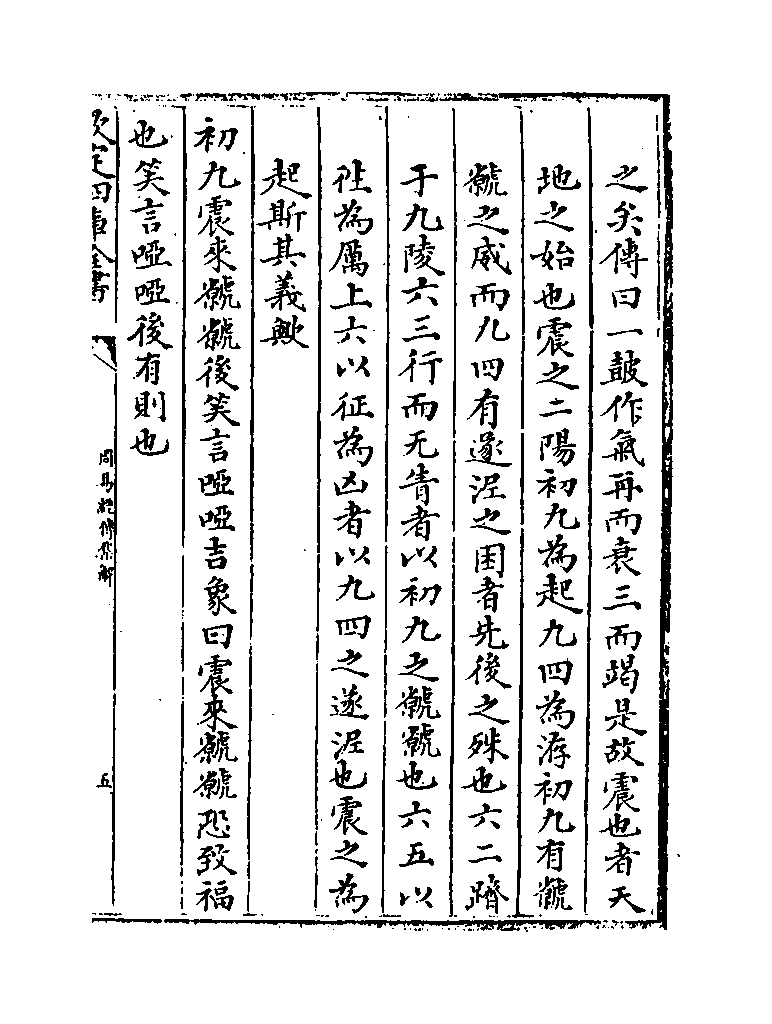 之矣傳曰一鼓作氣再而衰三而竭是故震也者天
地之始也震之二陽初九為起九四為洊初九有虩
虩之威而九四有遂泥之困者先後之殊也六二躋
于九陵六三行而无眚者以初九之虩虩也六五以
徃為厲上六以征為凶者以九四之遂泥也震之為
起斯其義歟
初九震來虩虩後笑言啞啞吉象曰震來虩虩恐致福
也笑言啞啞後有則也
欽定四庫全書
周易經傳集解
五